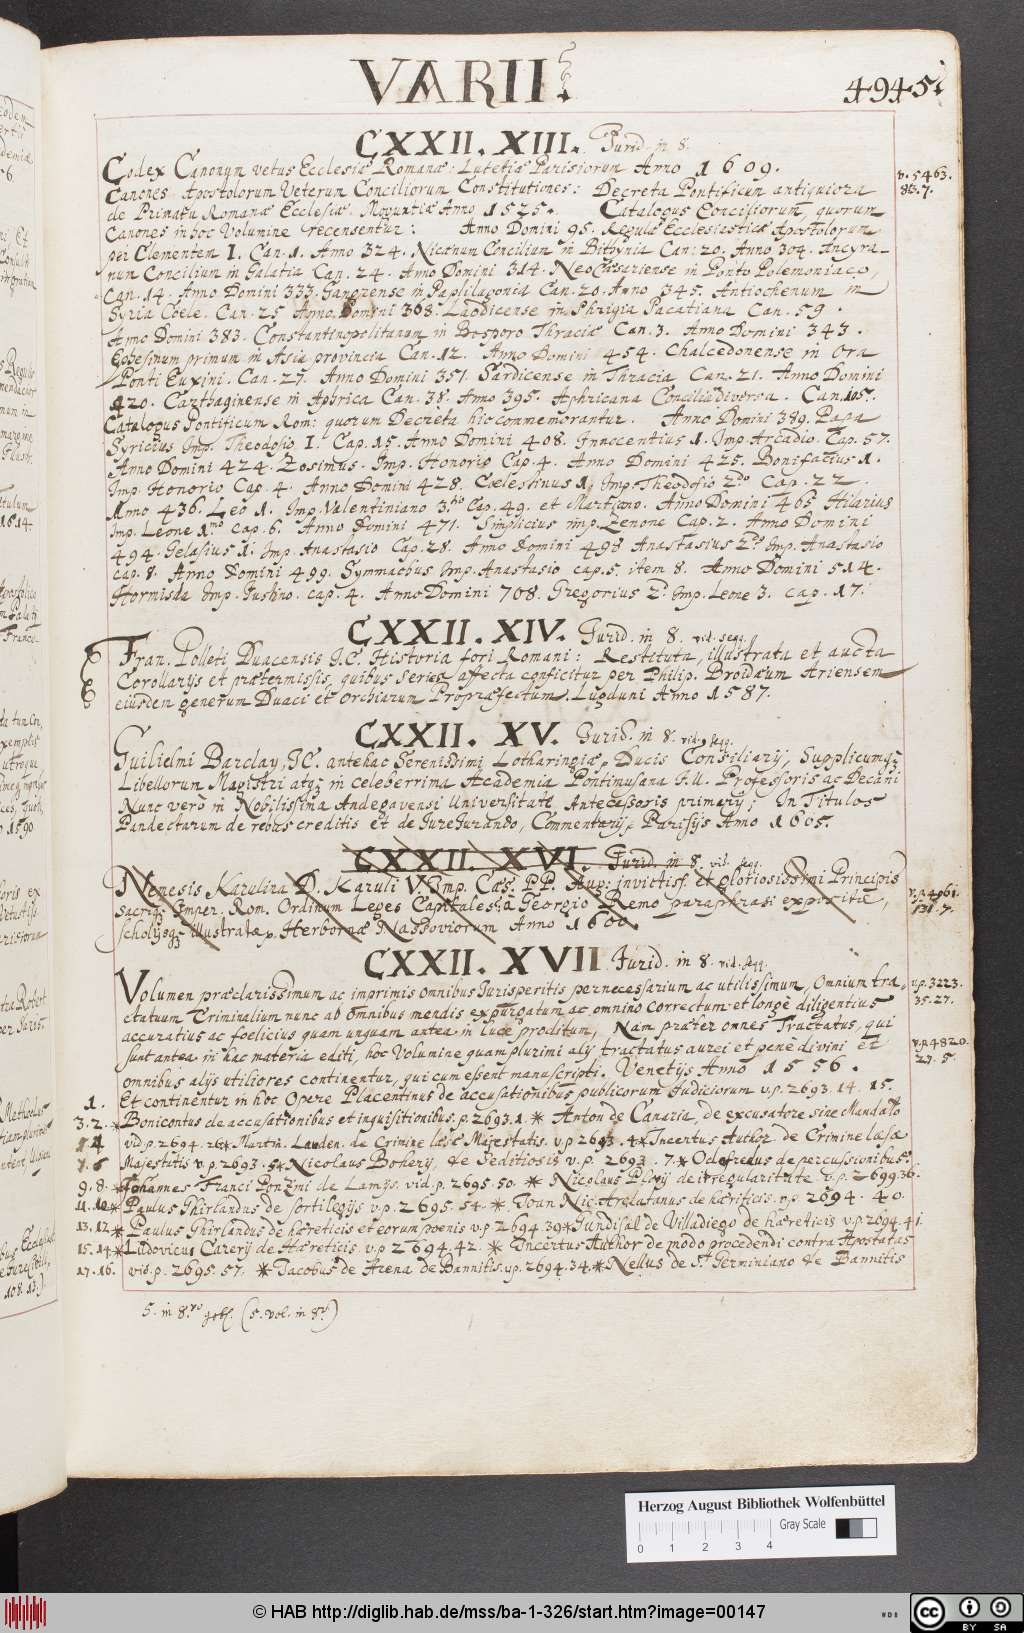 VARII.
4945
CXXII. XIII. Jurid. in 8.
Codex Canonum vetus Ecclesiæ Romanæ: Lutetiæ Parisiorum Anno 1609.
Canones Apostolorum Veterum Conciliorum Constitutiones: Decreta Pontificum antiquiora
v. 5463.
83. 7.
de Primatu Romanæ Ecclesiæ. Moguntiæ Anno 1525. Catalogus Conciliorum, quorum
Canones in hoc Volumine recensentur: Anno Domini 95. Regulæ Ecclesiasticæ Apostolorum
per Clementem I. Can. 1. Anno 324. Nicænum Concilium in Bithynia Can: 20. Anno 304. Ancyra-
num Concilium in Galatia Can. 24. Anno Domini 314. NeoCæsariense in Ponto Polemoniaco,
Can. 14. Anno Domini 333. Gangrense in Paphlagonia Can. 20. Anno 345. Antiochenum in
Syria Coele. Can. 25 Anno Domini 368. Laodicense in Phrigia Pacatiana Can. 59.
Anno Domini 383. Constantinopolitanum in Bosporo Thraciæ Can. 3. Anno Domini 343.
Ephesinum primum in Asia provincia Can. 12. Anno Domini 454. Chalcedonense in Ora
Ponti Euxini. Can. 27. Anno Domini 351. Sardicense in Thracia Can. 21. Anno Domini
420. Carthaginense in Aphrica Can. 38. Anno 395. Aphricana Concilia Diversa. Can. 105.
Catalogus Pontificum Rom: quorum Decreta hic commemorantur. Anno Domini 389. Papa
Syricius Imp. Theodosio I. Cap. 15. Anno Domini 408. Innocentius 1. Imp Arcadio. Cap. 57.
Anno Domini 424. Zosimus. Imp. Honorio Cap. 4. Anno Domini 425. Bonifacius 1.
Imp. Honorio Cap. 4. Anno Domini 428. Cœlestinus 1. Imp. Theodosio 2do Cap. 22.
Anno 436. Leo 1. Imp. Valentiniano 3tio Cap. 49. et Martiano. Anno Domini 465 Hilarius
Imp. Leone 1mo Cap. 6. Anno Domini 471. Simplicius imp. Zenone Cap. 2. Anno Domini
494. Gelasius 1. Imp. Anastasio Cap. 28. Anno Domini 498 Anastasius 2s Imp. Anastasio
cap. 8. Anno Domini 499. Symmachus Imp. Anastasio cap. 5. item 8. Anno Domini 514.
Hormisda Imp. Justino. cap. 4. Anno Domini 708. Gregorius 2s Imp. Leone 3. cap. 17.
CXXII. XIV. Jurid. in 8. vid. seqq.
Fran. Polleti Duacensis J.C. Historia fori Romani: Restituta, illustrata et aucta
Corollarijs et prætermissis, quibus series affecta conficitur per Philip. Broidæum Ariensem
eiusdem generum Duaci et Orchiarum Propræfectum. Lugduni Anno 1587.
CXXII. XV. Jurid. in 8. vid. seqq.
Guilielmi Barclay, JC. antehac Serenissimi Lotharingiæ, Ducis Consiliarij, Supplicumq3
Libellorum Magistri atq3 in celeberrima Academia Pontimusana J.U. Professoris ac Decani
Nunc vero in Nobilissima Andegavensi Universitate Antecessoris primarij; In Titulos
Pandectarum de rebus creditis et de JureJurando, Commentarij, Parisijs Anno 1605.
CXXII XVI. Jurid. in 8. vid. seqq.
Nemesis Karulina D. Karuli V. Imp. Cæs. P.P. Aug: invictiss. et gloriosissimi Principis
v. p. 4961.
131. 7.
sacriq3 Imper. Rom. Ordinum Leges Capitales: à Georgio Remo paraphrasi expositæ,
scholijsq3 illustratæ, Herbornæ Nassoviorum Anno 1600
CXXII. XVII Jurid. in 8. vid. seqq.
Volumen præclarissimum ac imprimis omnibus Jurisperitis pernecessarium ac utilissimum, Omnium tra-
v. p. 3223.
35. 27.
ctatuum Criminalium nunc ab omnibus mendis expurgatum ac omnino correctum et longè diligentius
accuratius ac foelicius quam unquam antea in luce proditum, Nam præter omnes Tractatus, qui
sunt antea in hac materia editi, hoc Volumine quam plurimi alij tractatus aurei et penè divini et
v. p. 4820.
27. 5.
omnibus alijs utiliores continentur, qui cum essent manuscripti. Venetijs Anno 1556.
1. Et continentur in hoc Opere Placentinus de accusationibus publicorum Judiciorum v.p. 2693. 14. 15.
3. 2. * Bonicontus de accusationibus et inquisitionibus. p. 2693. 1 * Anton de Canaria, de excusatore sine Mandato
vid p. 2694. 26 * Martin. Lauden. de Crimine læsæ Majestatis. v.p 2693. 4 * Incertus Author de Crimine læsæ
Majestatis v. p. 2693. 5 * Nicolaus Bohery, de Seditiosis v. p. 2693. 7. * Odofredus de percussionibus.
9. 8. * Johannes Franci Ponzini de Lamijs. vid. p. 2695. 50. * Nicolaus Plovij de irregularitate v.p. 2699. 36.
11. 10 * Paulus Ghirlandus de sortilegijs v. p. 2695. 54. * Joan Nic. Arelatanus de hæreticis. v.p 2694. 40.
13. 12. * Paulus Ghirlandus de hæreticis et eorum poenis v.p 2694. 39 * Gundisal de Villadiego de hæreticis v.p 2694. 41.
15. 14 * Ludovicus Carerij de Hæreticis v.p 2694. 42. * Incertus Author de modo procedendi contra Apostatas
17. 16. vid. p. 2695. 57. * Jacobus de Arena de Bannitis. v.p. 2694. 34. * Nellus de S. Germiniano de Bannitis
5. in 8.vo (5. vol. in 8.)
Herzog August Bibliothek Wolfenbüttel
Gray Scale
0 1 2 3 4
© HAB http://diglib.hab.de/mss/ba-1-326/start.htm?image=00147
WDB
cc BY SA